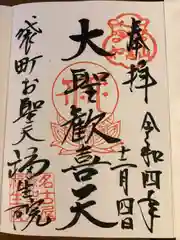 奉拝
令和四年
十二月四日
大聖歓喜天
袋町お聖天
福生院
名古屋